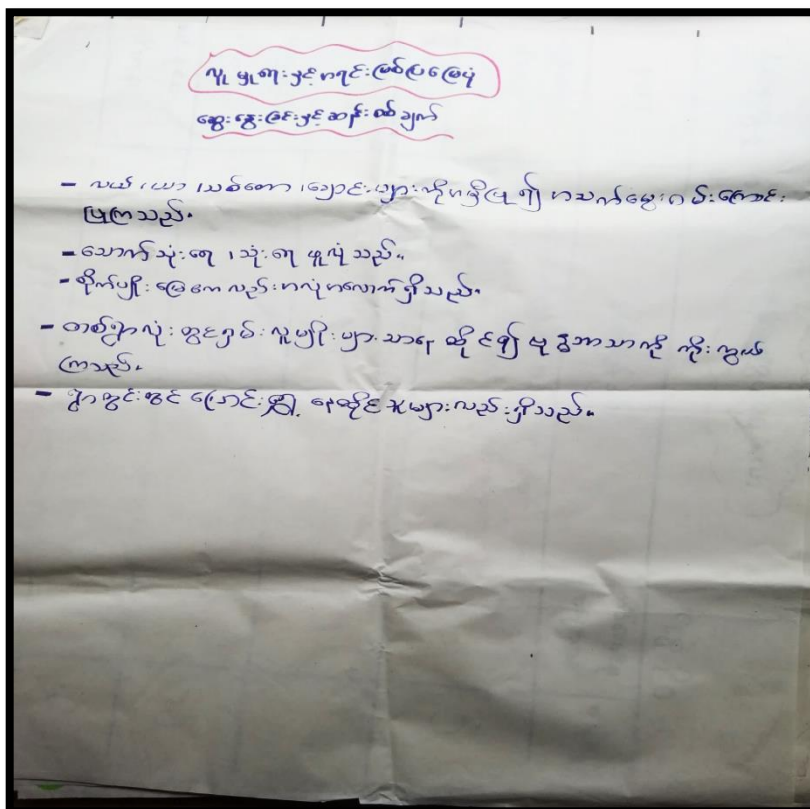 လူမှုရေးနှင့်အရင်းမြစ်ပြမြေပုံ
ဆွေးနွေးခြင်းနှင့်ဆန်းစစ်ချက်
- လယ်၊ယာ၊သစ်တော၊ချောင်းများကိုအမှီပြု၍ အသက်မွေးဝမ်းကြောင်း
ပြုကြသည်။
- သောက်သုံးရေ၊သုံးရေ ဖူလုံသည်။
- စိုက်ပျိုးမြေကလည်းအလုံအလောက်ရှိသည်။
- တစ်ရွာလုံးတွင်ရှမ်းလူမျိုးများသာနေထိုင်၍ ဗုဒ္ဓဘာသာကို ကိုးကွယ်
ကြသည်။
- ရွာတွင်းတွင် ပြောင်းရွှေ့နေထိုင်သူများလည်းရှိသည်။